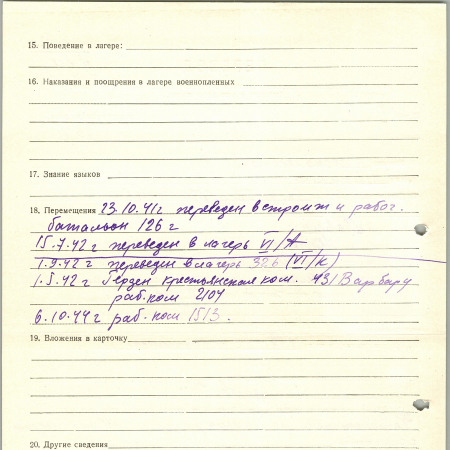 15. Поведение в лагере:
16. Наказания и поощрения в лагере военнопленных
17. Знание языков
18. Перемещения 23.10.41г переведен в строит и рабоч.
батальон 126 г
15.7.42 г переведен в лагерь VI/A
1.9.42 г переведен в лагерь 326 (VI/K)
1.5.42 г Герден крестьянская ком. 431 Варбару
раб. ком 2104
6.10.44 г раб. ком 1513.
19. Вложения в карточку
20. Другие сведения